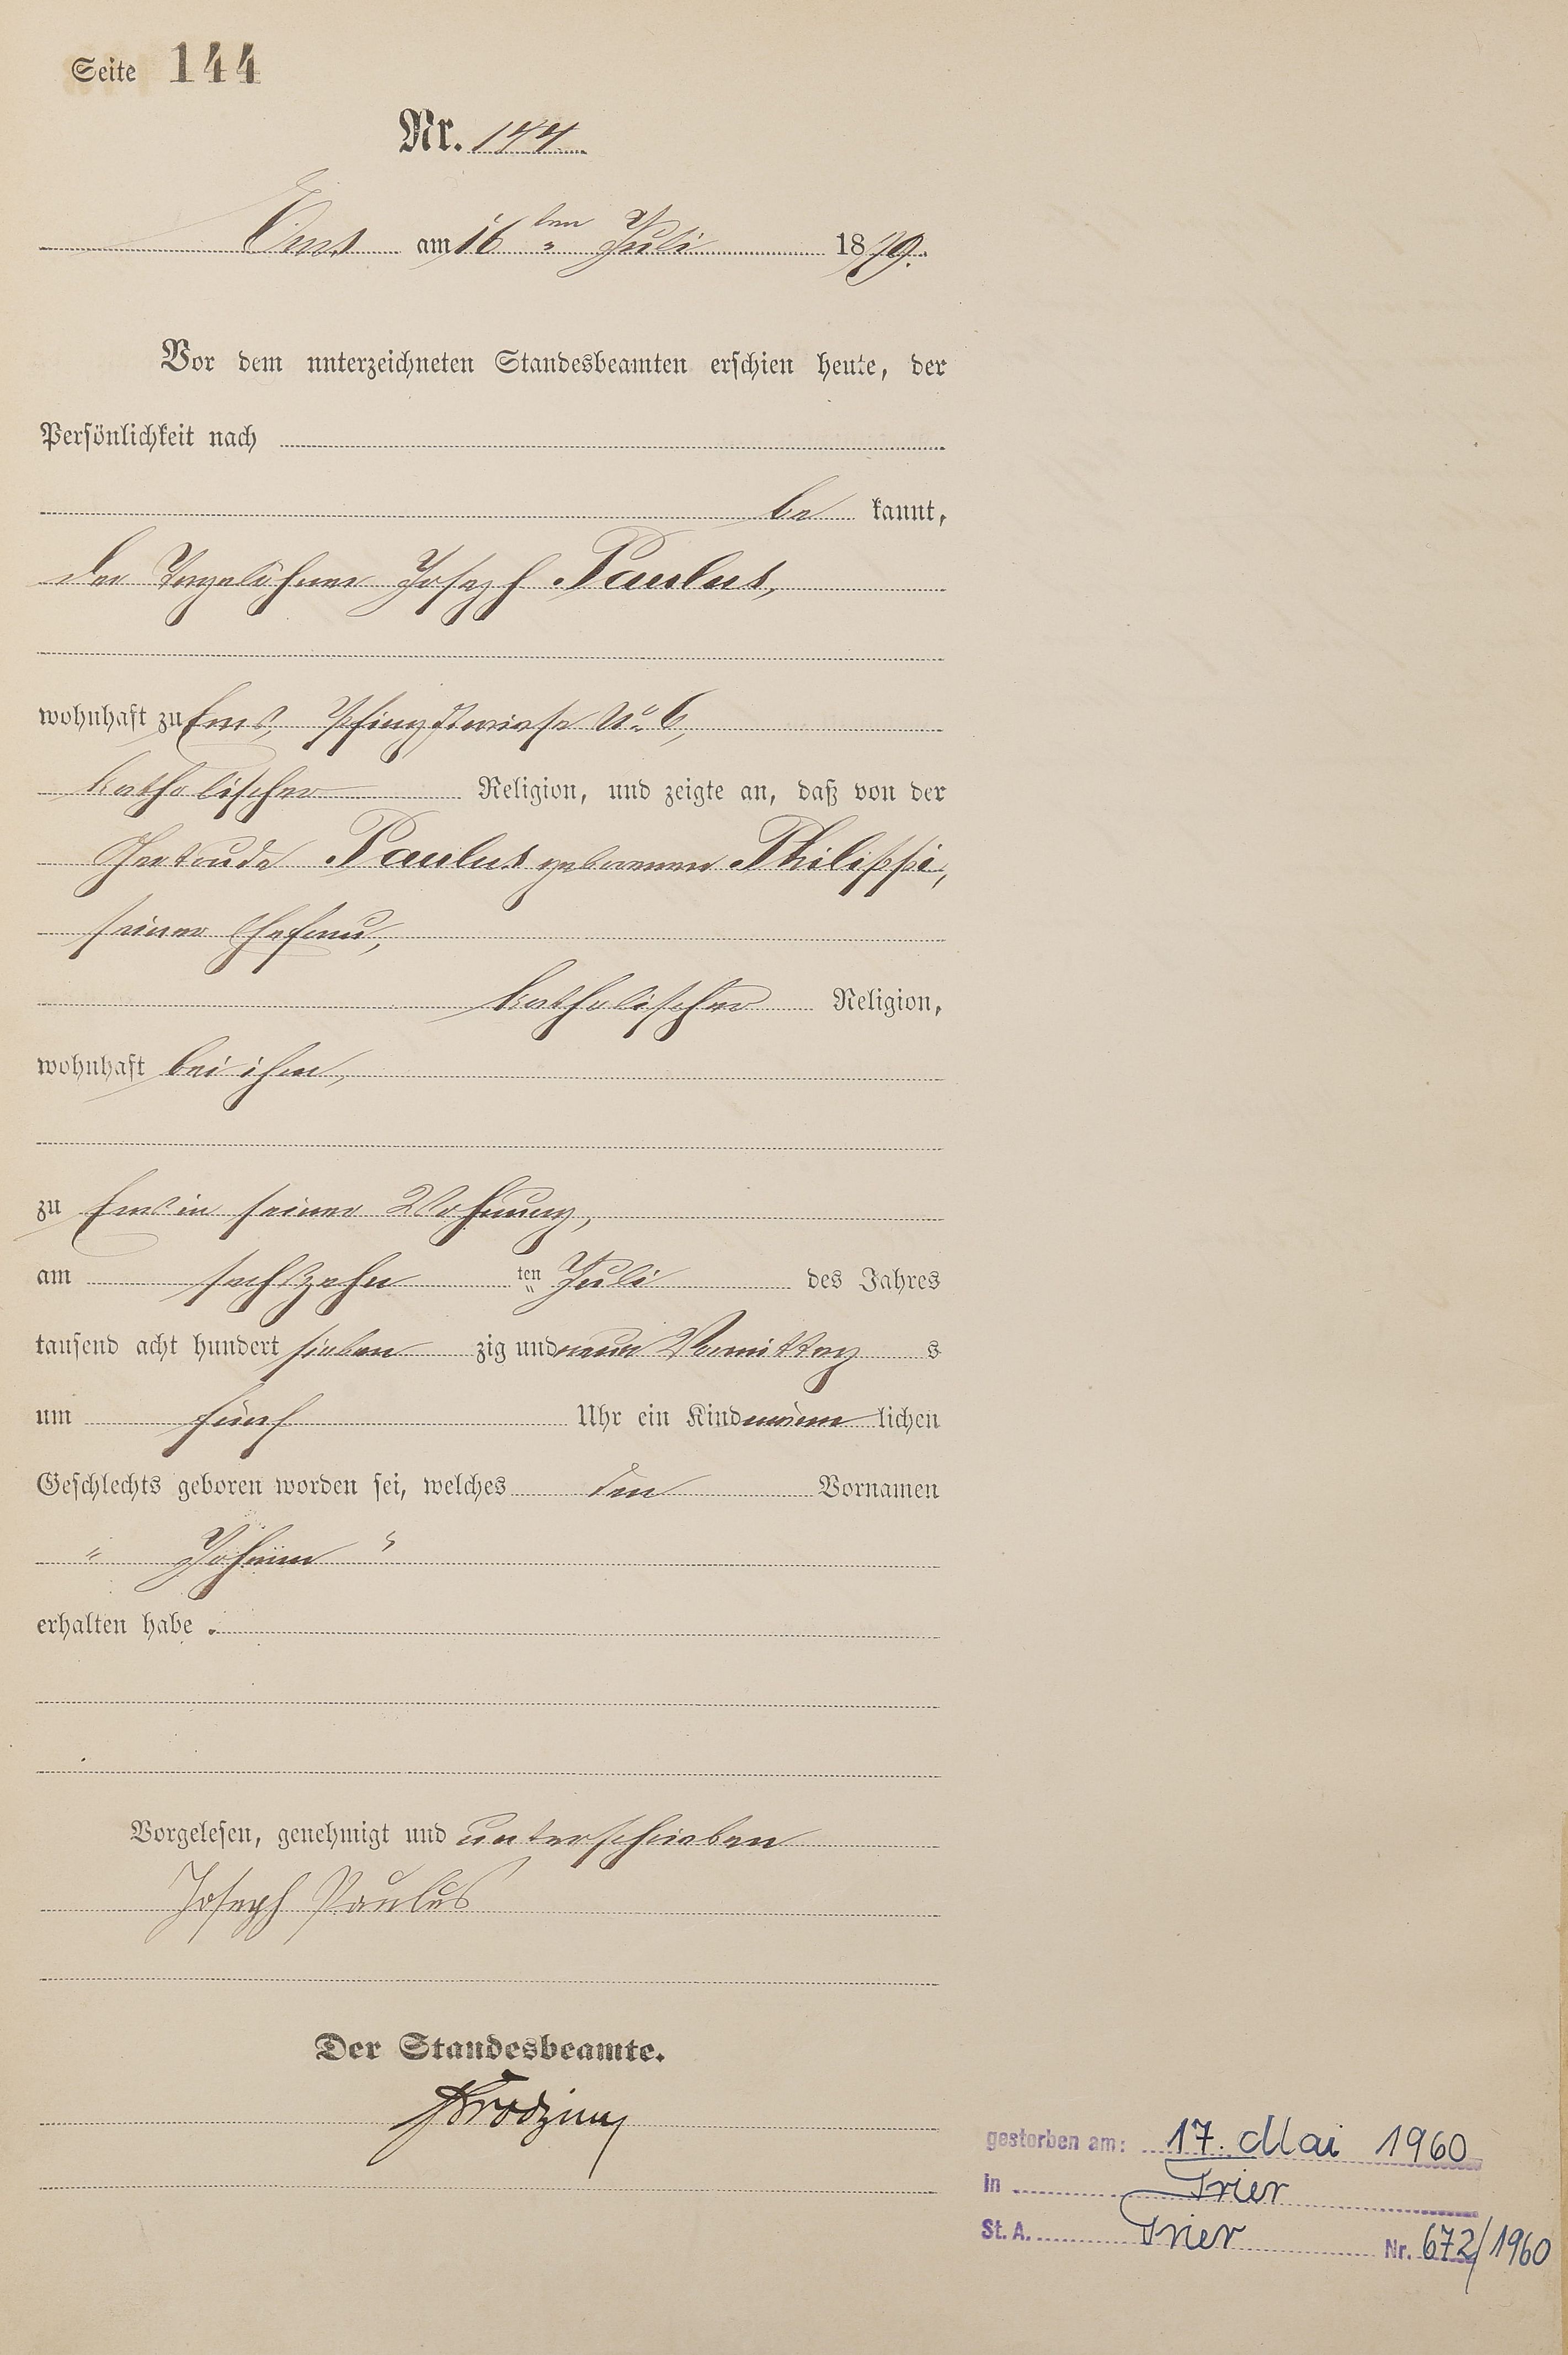 Seite 144
Nr. 144
Ems am 16ten Juli 1879.
Vor dem unterzeichneten Standesbeamten erschien heute, der
Persönlichkeit nach
be kannt,
der Tagelöhner Joseph Paulus,
wohnhaft zu Ems, Pfingstwiese No 6,
katholischer Religion, und zeigte an, daß von der
Gertrude Paulus geborenen Philippi,
seiner Ehefrau,
katholischer Religion,
wohnhaft bei ihm,
zu Ems in seiner Wohnung,
am sechszehn ten Juli des Jahres
tausend acht hundert sieben zig und neun Vormittag s
um fünf Uhr ein Kind männ lichen
Geschlechts geboren worden sei, welches den Vornamen
„ Johann “
erhalten habe .
Vorgelesen, genehmigt und unterschrieben
Joseph Paulus
Der Standesbeamte.
gestorben am: 17. Mai 1960
in Trier
St. A. Trier Nr. 672/1960